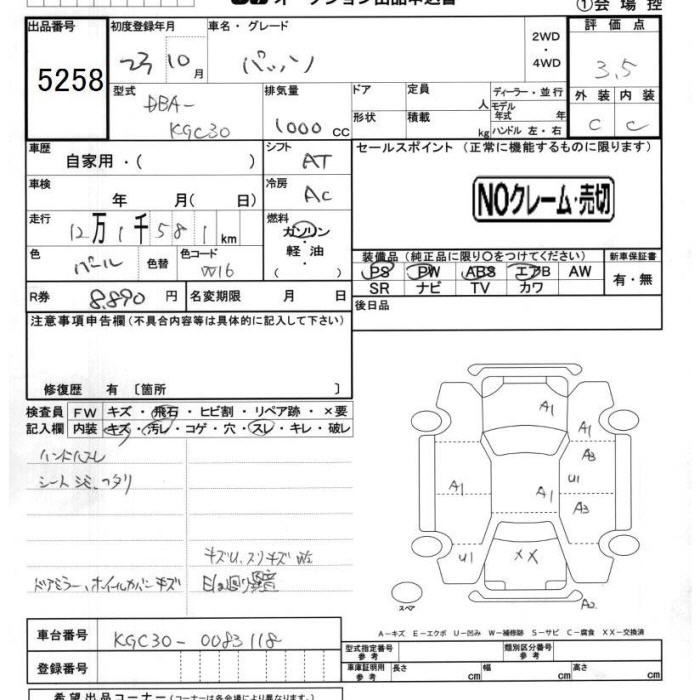 オークション出品申込書
①会場控
出品番号
5258
初度登録年月
23 10 月
車名・グレード
パッソ
2WD
・
4WD
評価点
3.5
外装 内装
C C
型式
DBA-
KGC30
排気量
1000 cc
ドア
定員
人
形状
積載
kg
ディーラー・並行
モデル年式 年
ハンドル 左・右
車歴
自家用・( )
シフト
AT
セールスポイント (正常に機能するものに限ります)
NOクレーム・売切
車検
年 月( 日)
冷房
AC
走行
12万1千581km
燃料
ガソリン
・
軽油
( )
色
パール
色替
色コード
W16
装備品 (純正品に限り○をつけてください)
PS PW ABS エアB AW
SR ナビ TV カワ
新車保証書
有・無
R券
8,890 円
名変期限 月 日
後日品
注意事項申告欄(不具合内容等は具体的に記入して下さい)
修復歴 有 〔箇所 〕
検査員
記入欄
FW キズ・飛石・ヒビ割・リペア跡・×要
内装 キズ・汚レ・コゲ・穴・スレ・キレ・破レ
ハンドルスレ
シート シミ、ヘタリ
キズU、スリキズ
ドアミラー、ホイールカバーキズ
A1
A1
A3
U1
A1
A1
A3
U1
XX
A2
スペア
A-キズ E-エクボ U-凹み W-補修跡 S-サビ C-腐食 XX-交換済
車台番号
KGC30-0083118
登録番号
型式指定番号
参考
類別区分番号
参考
車庫証明用
参考
長さ cm
幅 cm
高さ cm
希望出品コーナー(コーナーは各会場により異なります。)